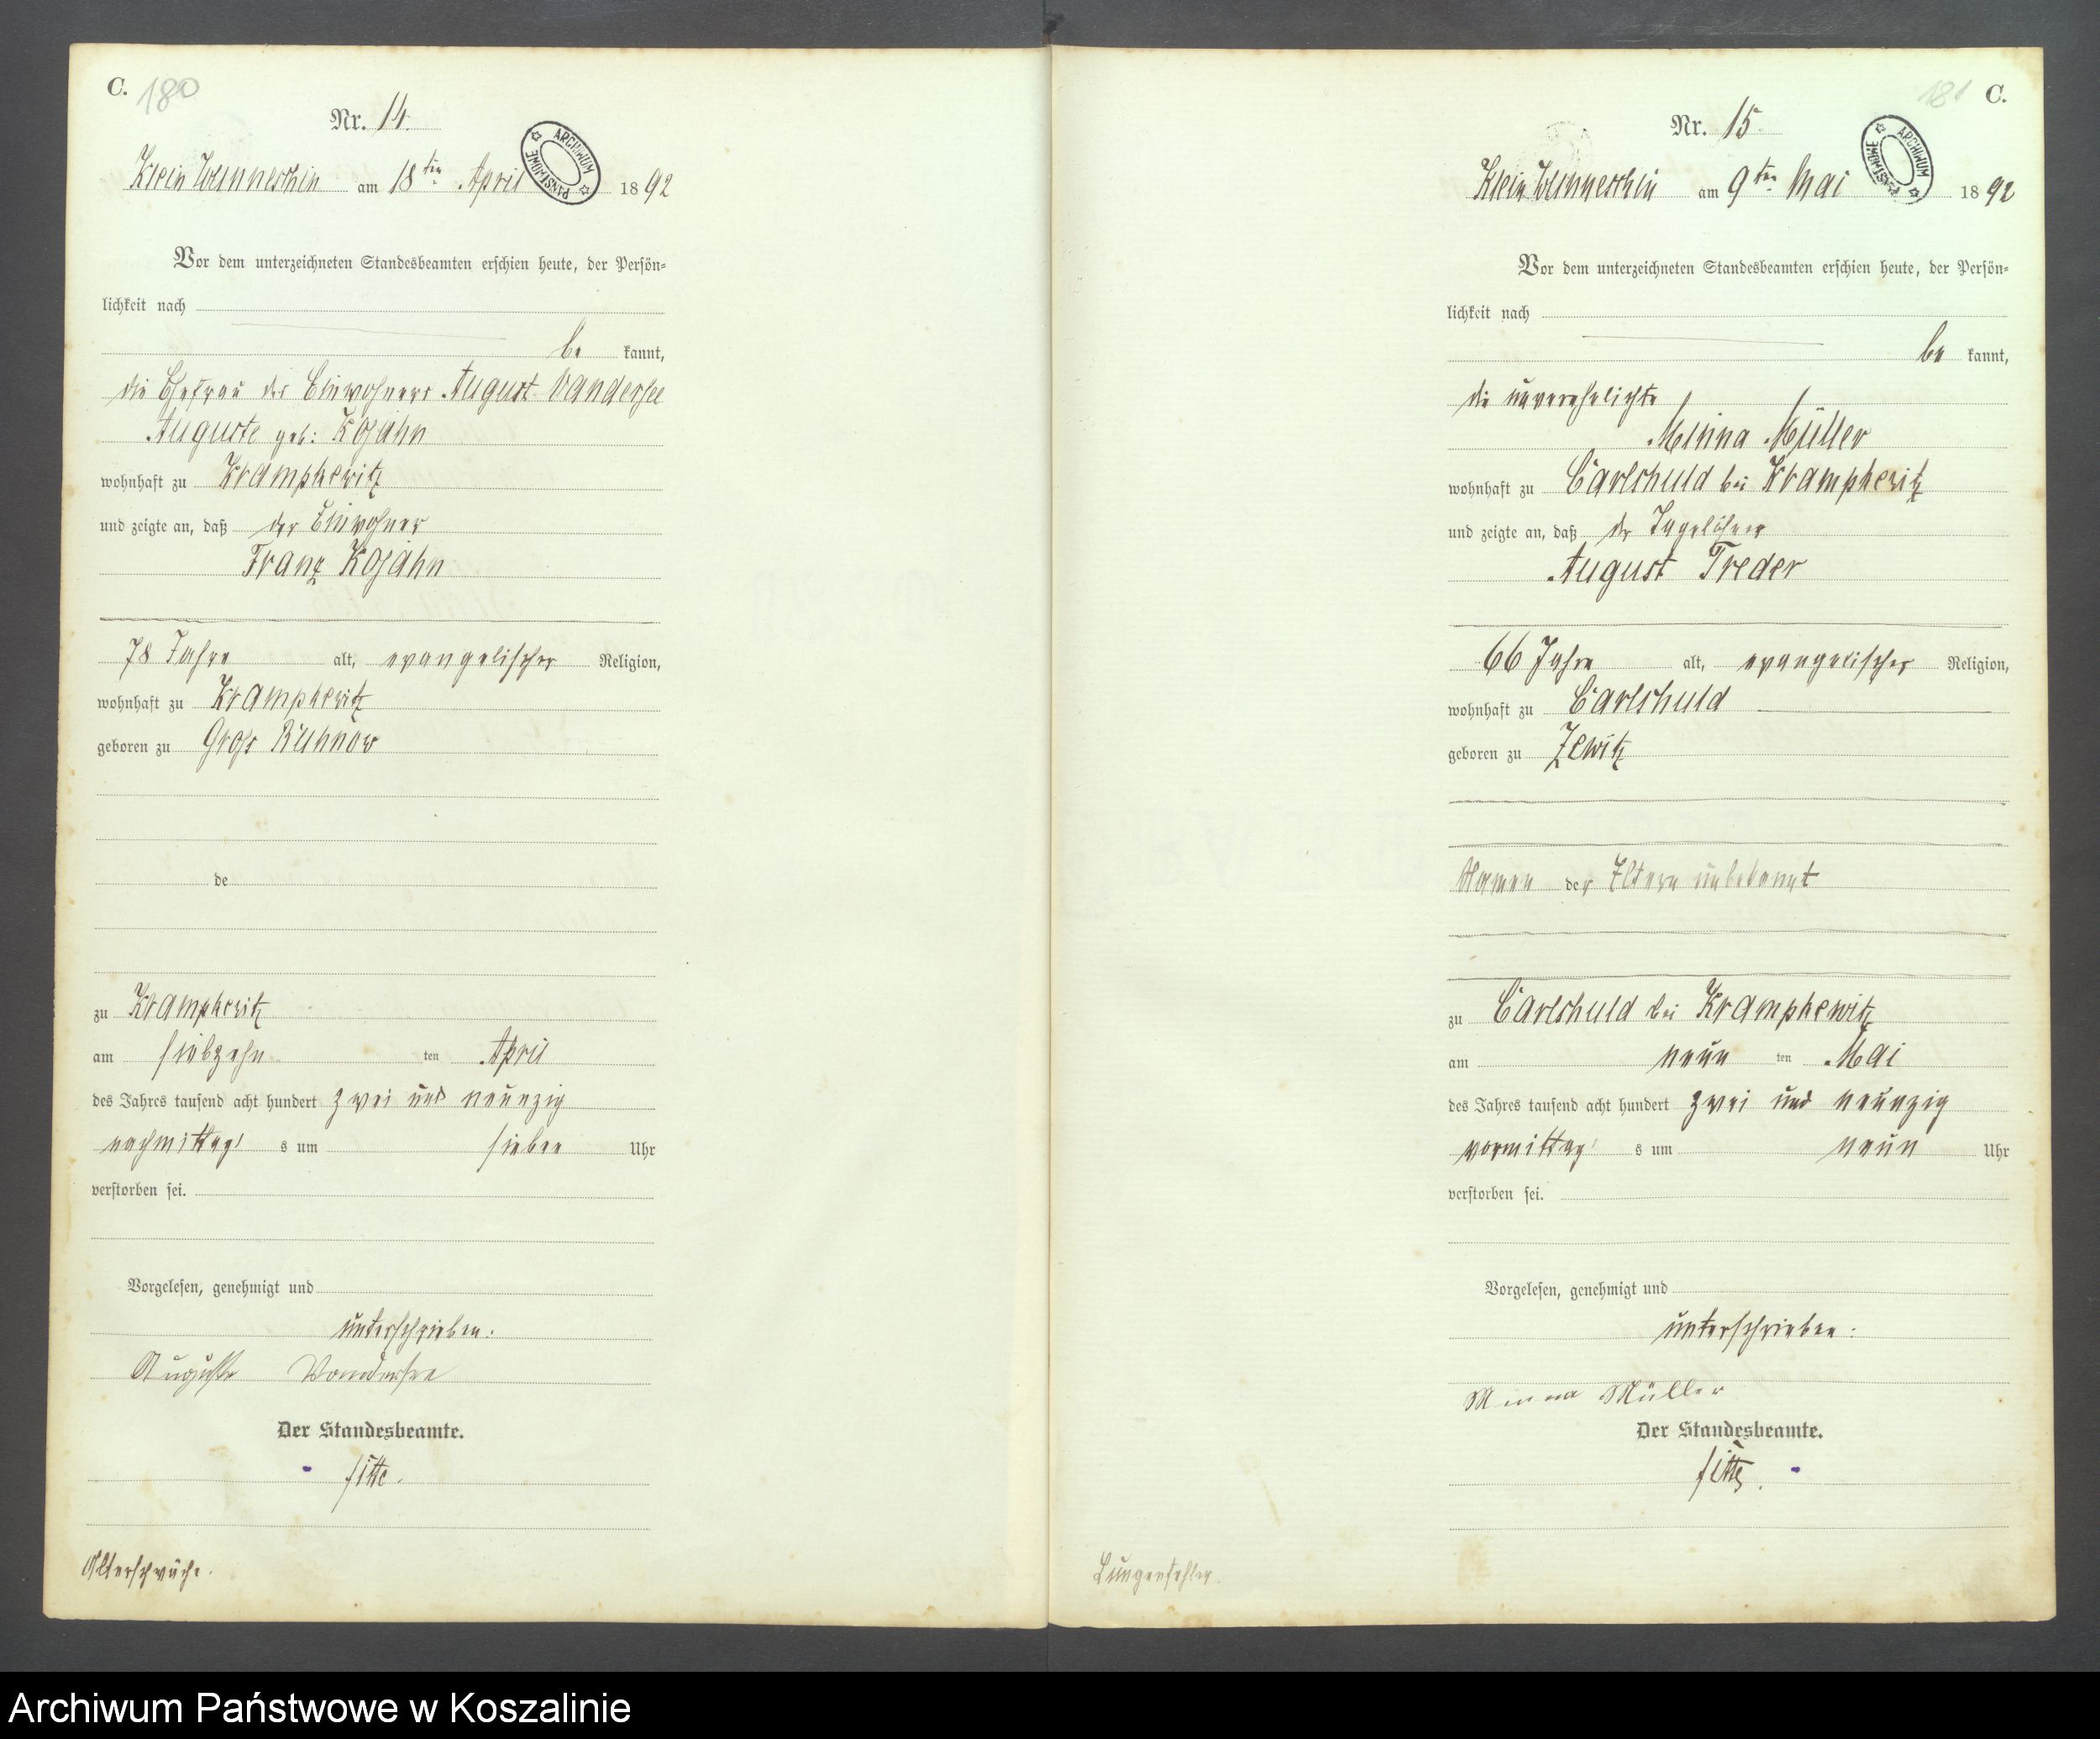 C. 180
Nr. 14.
ARCHIWUM PAŃSTWOWE
Klein Wunneschin am 18ten April 1892
Vor dem unterzeichneten Standesbeamten erschien heute, der Persön-
lichkeit nach
be kannt,
die Ehefrau des Einwohners August Vandersee
Auguste geb: Kosjahn
wohnhaft zu Krampkewitz
und zeigte an, daß der Einwohner
Franz Kosjahn
78 Jahre alt, evangelischer Religion,
wohnhaft zu Krampkewitz
geboren zu Gross Ruhnow
de
zu Krampkewitz
am siebzehn ten April
des Jahres tausend acht hundert zwei und neunzig
nachmittag s um sieben Uhr
verstorben sei.
Vorgelesen, genehmigt und
unterschrieben.
Auguste Vandersee
Der Standesbeamte.
Altersschwäche.
181 C.
Nr. 15
ARCHIWUM PAŃSTWOWE
Klein Wunneschin am 9ten Mai 1892
Vor dem unterzeichneten Standesbeamten erschien heute, der Persön-
lichkeit nach
be kannt,
die unverehelichte
Minna Müller
wohnhaft zu Carlshuld bei Krampkewitz
und zeigte an, daß der Tagelöhner
August Treder
66 Jahre alt, evangelischer Religion,
wohnhaft zu Carlshuld
geboren zu Zewitz
Namen der Eltern unbekannt
zu Carlshuld bei Krampkewitz
am neun ten Mai
des Jahres tausend acht hundert zwei und neunzig
vormittag s um neun Uhr
verstorben sei.
Vorgelesen, genehmigt und
unterschrieben:
Minna Müller
Der Standesbeamte.
Lungenfehler.
Archiwum Państwowe w Koszalinie